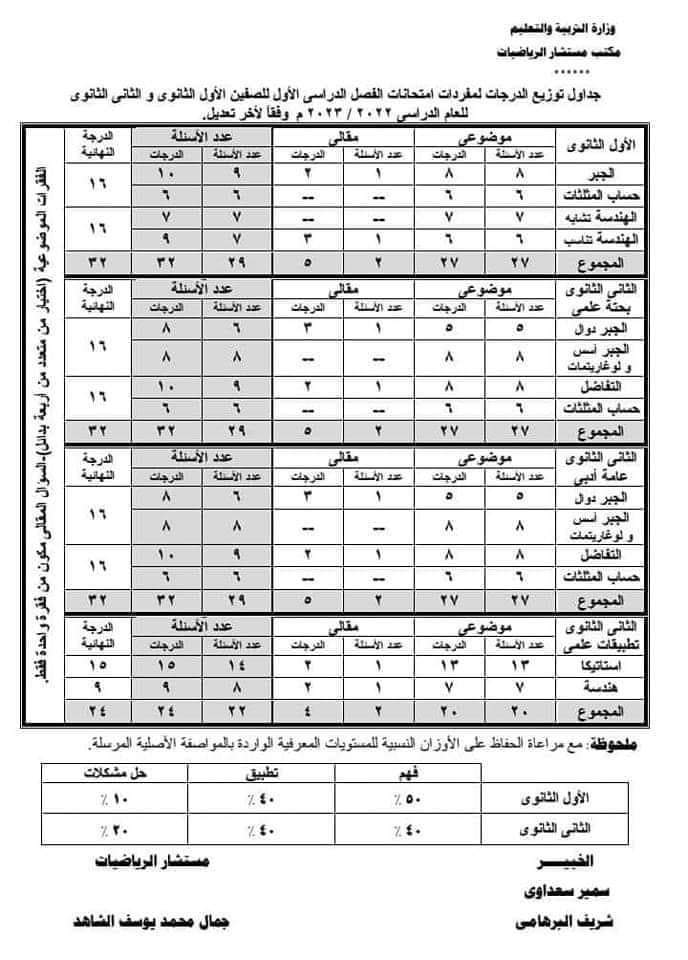 وزارة التربية والتعليم
مكتب مستشار الرياضيات
******
جداول توزيع الدرجات لمفردات امتحانات الفصل الدراسى الأول للصفين الأول الثانوى و الثانى الثانوى
للعام الدراسى ٢٠٢٢ / ٢٠٢٣ م وفقاً لآخر تعديل.
الأول الثانوى موضوعي مقالي عدد الأسئلة الدرجة النهائية
عدد الأسئلة الدرجات عدد الأسئلة الدرجات عدد الأسئلة الدرجات
الجبر ٨ ٨ ١ ٢ ٩ ١٠ ١٦
حساب المثلثات ٦ ٦ -- -- ٦ ٦
الهندسة تشابه ٧ ٧ -- -- ٧ ٧ ١٦
الهندسة تناسب ٦ ٦ ١ ٣ ٧ ٩
المجموع ٢٧ ٢٧ ٢ ٥ ٢٩ ٣٢ ٣٢
الثانى الثانوى بحتة علمى موضوعي مقالي عدد الأسئلة الدرجة النهائية
عدد الأسئلة الدرجات عدد الأسئلة الدرجات عدد الأسئلة الدرجات
الجبر دوال ٥ ٥ ١ ٣ ٦ ٨ ١٦
الجبر أسس و لوغاريتمات ٨ ٨ -- -- ٨ ٨
التفاضل ٨ ٨ ١ ٢ ٩ ١٠ ١٦
حساب المثلثات ٦ ٦ -- -- ٦ ٦
المجموع ٢٧ ٢٧ ٢ ٥ ٢٩ ٣٢ ٣٢
الثانى الثانوى عامة أدبى موضوعي مقالي عدد الأسئلة الدرجة النهائية
عدد الأسئلة الدرجات عدد الأسئلة الدرجات عدد الأسئلة الدرجات
الجبر دوال ٥ ٥ ١ ٣ ٦ ٨ ١٦
الجبر أسس و لوغاريتمات ٨ ٨ -- -- ٨ ٨
التفاضل ٨ ٨ ١ ٢ ٩ ١٠ ١٦
حساب المثلثات ٦ ٦ -- -- ٦ ٦
المجموع ٢٧ ٢٧ ٢ ٥ ٢٩ ٣٢ ٣٢
الثانى الثانوى تطبيقات علمى موضوعي مقالي عدد الأسئلة الدرجة النهائية
عدد الأسئلة الدرجات عدد الأسئلة الدرجات عدد الأسئلة الدرجات
استاتيكا ١٣ ١٣ ١ ٢ ١٤ ١٥ ١٥
هندسة ٧ ٧ ١ ٢ ٨ ٩ ٩
المجموع ٢٠ ٢٠ ٢ ٤ ٢٢ ٢٤ ٢٤
الفقرات الموضوعية (اختيار من متعدد من أربعة بدائل)-السؤال المقالى مكون من فقرة واحدة فقط.
ملحوظة: مع مراعاة الحفاظ على الأوزان النسبية للمستويات المعرفية الواردة بالمواصفة الأصلية المرسلة.
فهم تطبيق حل مشكلات
الأول الثانوى ٥٠ ٪ ٤٠ ٪ ١٠ ٪
الثانى الثانوى ٤٠ ٪ ٤٠ ٪ ٢٠ ٪
الخبيـــر مستشار الرياضيات
سمير سعداوى
شريف البرهامى جمال محمد يوسف الشاهد